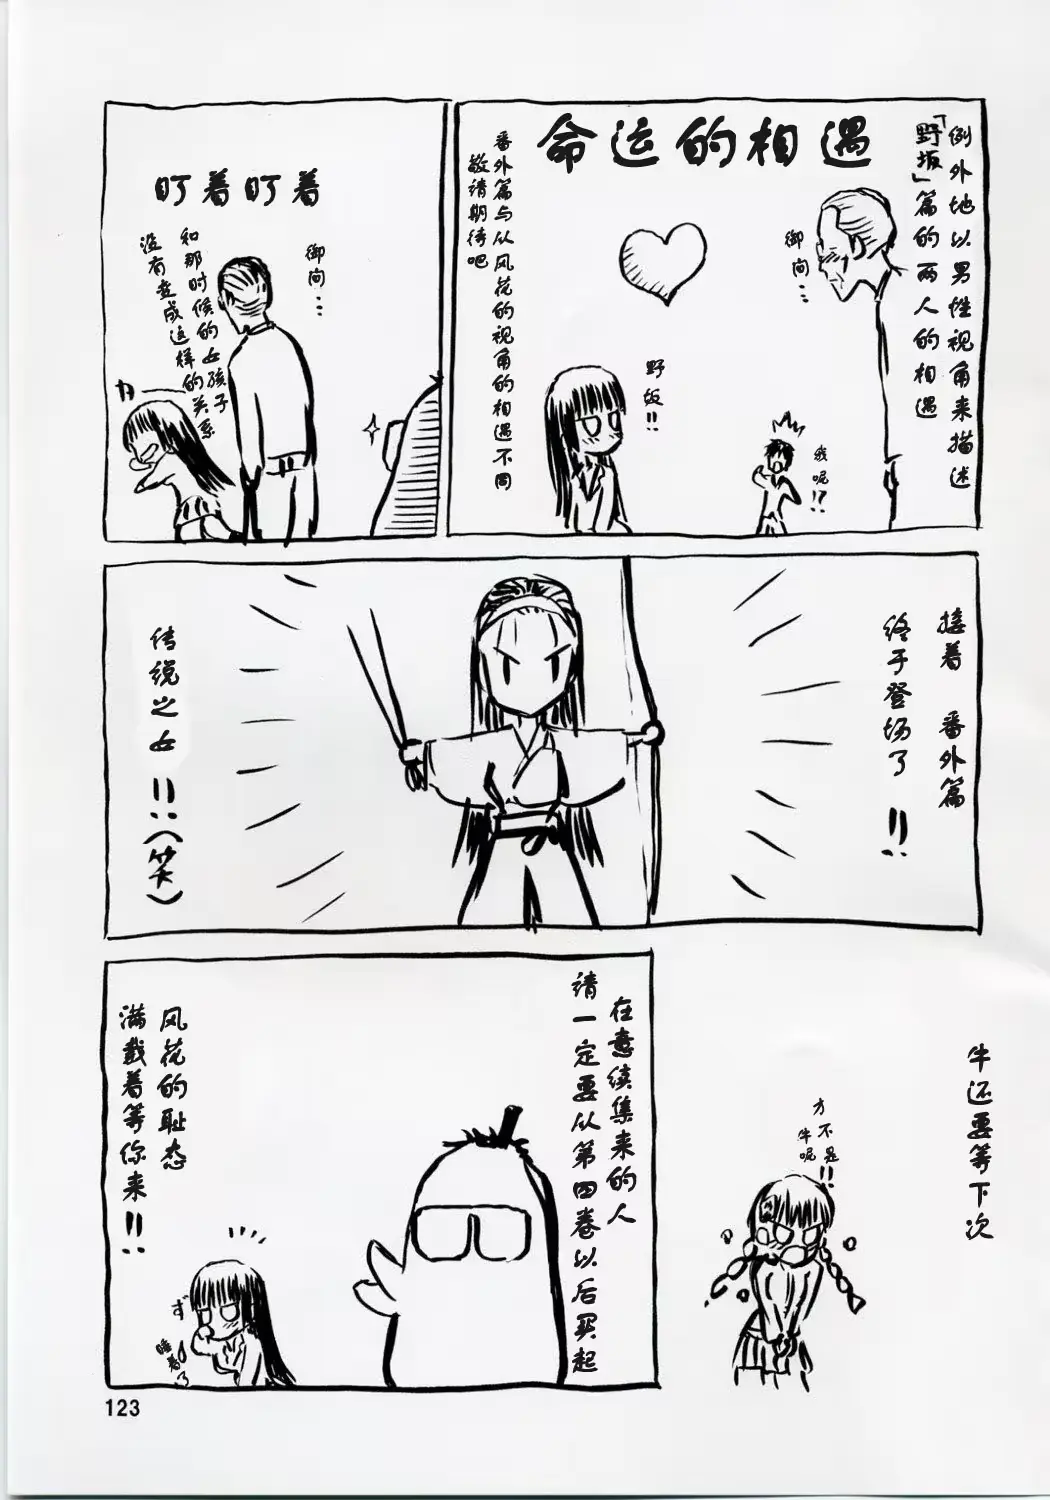 例外地以男性视角来描述
「野坂」篇的两人的相遇
命运的相遇
御间…
野坂!!
我呢!?
番外篇与从风花的视角的相遇不同
敬请期待吧
盯着盯着
御间…
和那时候的女孩子
没有变成这样的关系
接着 番外篇
终于登场了!!
传说之女!!(笑)
在意续集来的人
请一定要从第四卷以后买起
风花的耻态
满载着等你来!!
ず
睡着了
牛还要等下次
才不是
牛呢!!
123